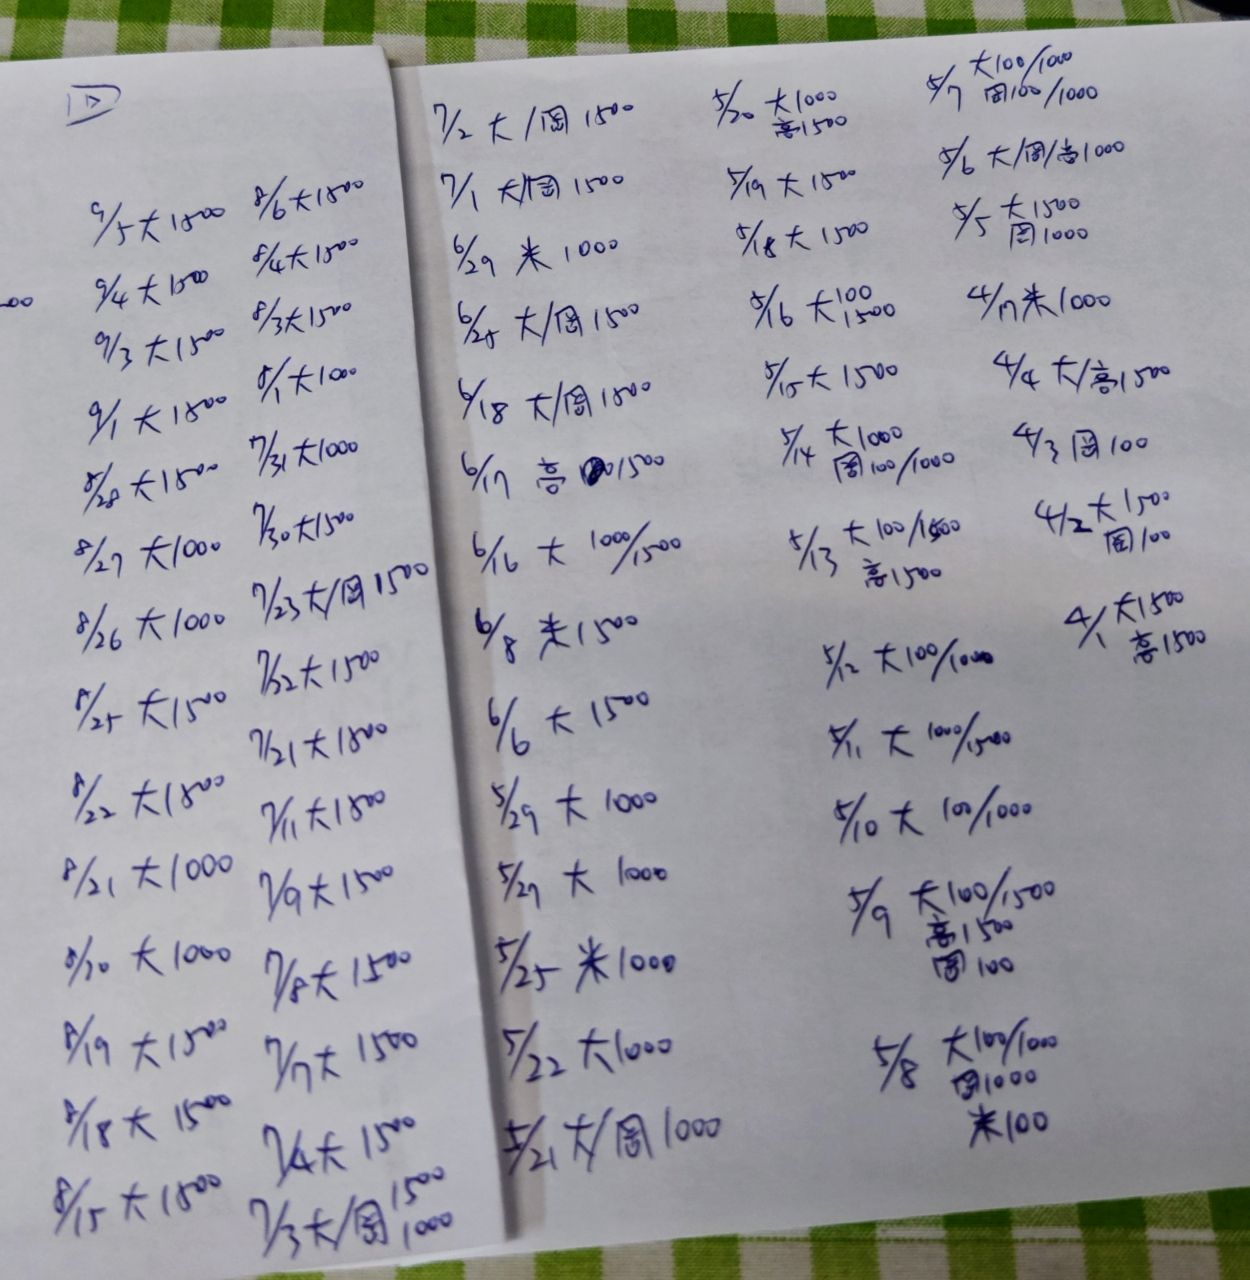 9/5 大 1500
9/4 大 1500
9/3 大 1500
9/1 大 1500
8/28 大 1500
8/27 大 1000
8/26 大 1000
8/25 大 1500
8/22 大 1500
8/21 大 1000
8/20 大 1000
8/19 大 1500
8/18 大 1500
8/15 大 1500
8/6 大 1500
8/4 大 1500
8/3 大 1500
8/1 大 1000
7/31 大 1000
7/30 大 1500
7/23 大/岡 1500
7/22 大 1500
7/21 大 1500
7/11 大 1500
7/9 大 1500
7/8 大 1500
7/7 大 1500
7/4 大 1500
7/3 大/岡 1500
1000
7/2 大/岡 1500
7/1 大/岡 1500
6/29 米 1000
6/25 大/岡 1500
6/18 大/岡 1500
6/17 高 1500
6/16 大 1000/1500
6/8 米 1500
6/6 大 1500
5/29 大 1000
5/27 大 1000
5/25 米 1000
5/22 大 1000
5/21 大/岡 1000
5/20 大 1000
高 1500
5/19 大 1500
5/18 大 1500
5/16 大 100
1500
5/15 大 1500
5/14 大 1000
岡 100/1000
5/13 大 100/1500
高 1500
5/12 大 100/1000
5/11 大 1000/1500
5/10 大 100/1000
5/9 大 100/1500
高 1500
岡 100
5/8 大 100/1000
岡 1000
米 100
5/7 大 100/1000
岡 100/1000
5/6 大/岡/高 1000
5/5 大 1500
岡 1000
4/17 米 1000
4/4 大/高 1500
4/3 岡 100
4/2 大 1500
岡 100
4/1 大 1500
高 1500